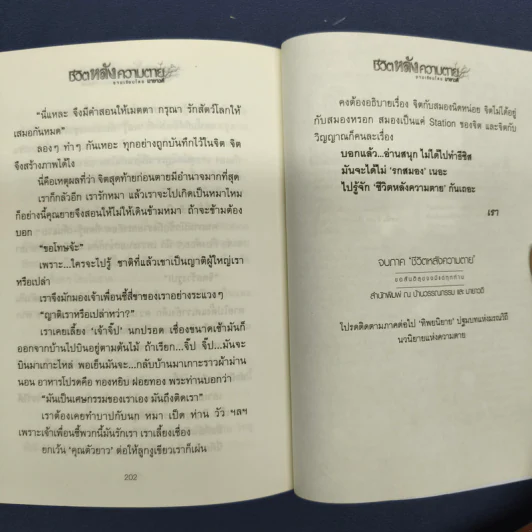 ชีวิตหลังความตาย
"นี่แหละ จึงมีคำสอนให้เมตตา กรุณา รักสัตว์โลกให้
เสมอกันหมด"
ลองๆ ทำๆ กันเหอะ ทุกอย่างถูกบันทึกไว้ในจิต จิต
จึงสร้างภาพได้ไง
นี่คือเหตุผลที่ว่า จิตสุดท้ายก่อนตายมีอำนาจมากที่สุด
เราก็กลัวอีก เรารักหมา แล้วเราจะไปเกิดเป็นหมาไหม
ก็อย่างนี้คุณยายจึงสอนให้ไม่ให้เดินข้ามหมา ถ้าจะข้ามต้อง
บอก
"ขอโทษจ้ะ"
เพราะ...ใครจะไปรู้ ชาติที่แล้วเขาเป็นญาติผู้ใหญ่เรา
หรือเปล่า
เราจึงมักมองเจ้าเพื่อนขี้สี่ขาของเราอย่างระแวงๆ
"ญาติเราหรือเปล่าหว่า?"
เราเคยเลี้ยง 'เจ้าจี๊ป' นกปรอด เชื่องขนาดเช้ามันก็
ออกจากบ้านไปบินอยู่ตามต้นไม้ ถ้าเรียก...จี๊ป จี๊ป...มันจะ
บินมาเกาะไหล่ พอเย็นมันจะ...กลับบ้านมาเกาะราวผ้าม่าน
นอน อาหารโปรดคือ ทองหยิบ ฝอยทอง พระท่านบอกว่า
"มันเป็นเศษกรรมของเราเอง มันถึงติดเรา"
เราต้องเคยทำบาปกับนก หมา เป็ด ห่าน วัว ฯลฯ
เพราะเจ้าเพื่อนขี้พวกนี้มันรักเรา เราเลี้ยงเชื่อง
ยกเว้น 'คุณตัวยาว' ต่อให้ลูกงูเขียวเราก็เผ่น
202
ชีวิตหลังความตาย
คงต้องอธิบายเรื่อง จิตกับสมองนิดหน่อย จิตไม่ได้อยู่
กับสมองหรอก สมองเป็นแค่ Station ของจิต และจิตกับ
วิญญาณก็คนละเรื่อง
บอกแล้ว...อ่านสนุก ไม่ได้ไปทำธีซิส
มันจะได้ไม่ 'รกสมอง' เนอะ
ไปรู้จัก 'ชีวิตหลังความตาย' กันเถอะ
เรา
จบภาค 'ชีวิตหลังความตาย'
สำนักพิมพ์ ณ บ้านวรรณกรรม และ นายาวดี
โปรดติดตามภาคต่อไป 'ทิพยนิยาย' ปฐมบทแห่งมรณวิถี
นวนิยายแห่งความตาย